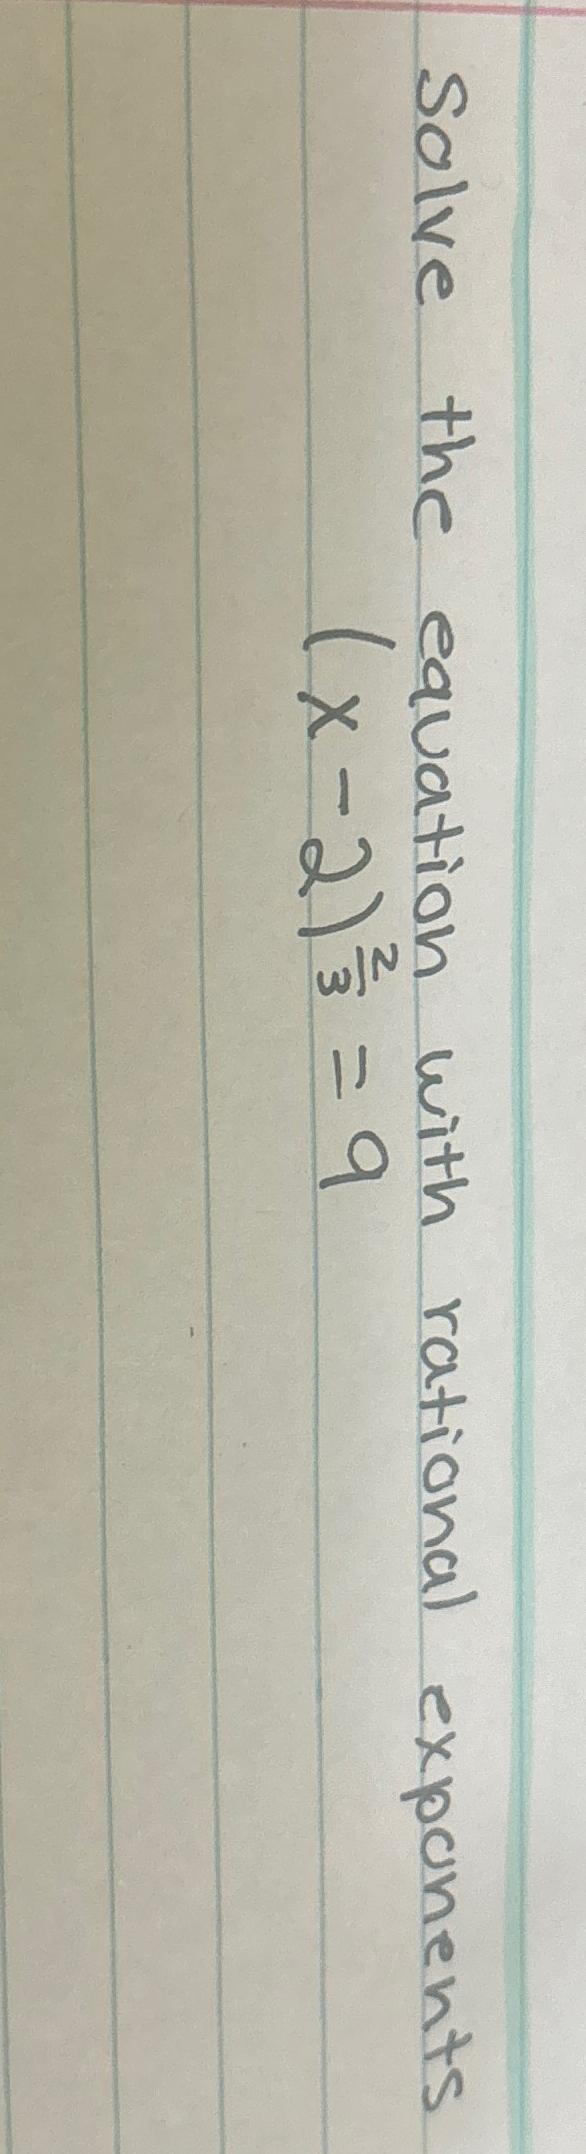 Solve the equation with rational exponents
(x - 2)^(2/3) = 9